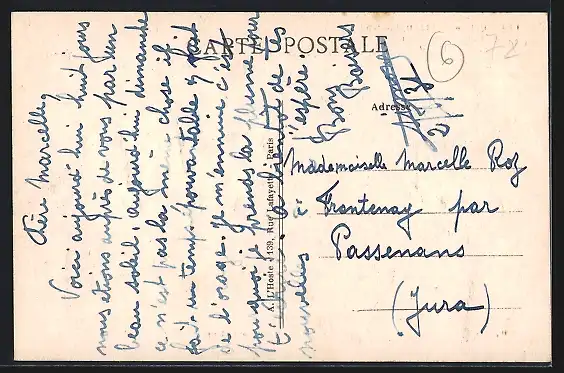 CARTE POSTALE
Adresse
6
72
Chère Marcelle,
Voici aujourd'hui huit jours
nous étions auprès de vous par un
beau soleil, aujourd'hui dimanche
ce n'est pas la même chose il
fait un temps épouvantable, il fait
de l'orage. Je m'ennuie c'est
pourquoi je prends la plume pour
A bientôt de tes
nouvelles j'espère.
Bons baisers
A. L'Hoste, 139, Rue Lafayette - Paris
Mademoiselle Marcelle Roz
à Frontenay par
Passenans
(Jura)